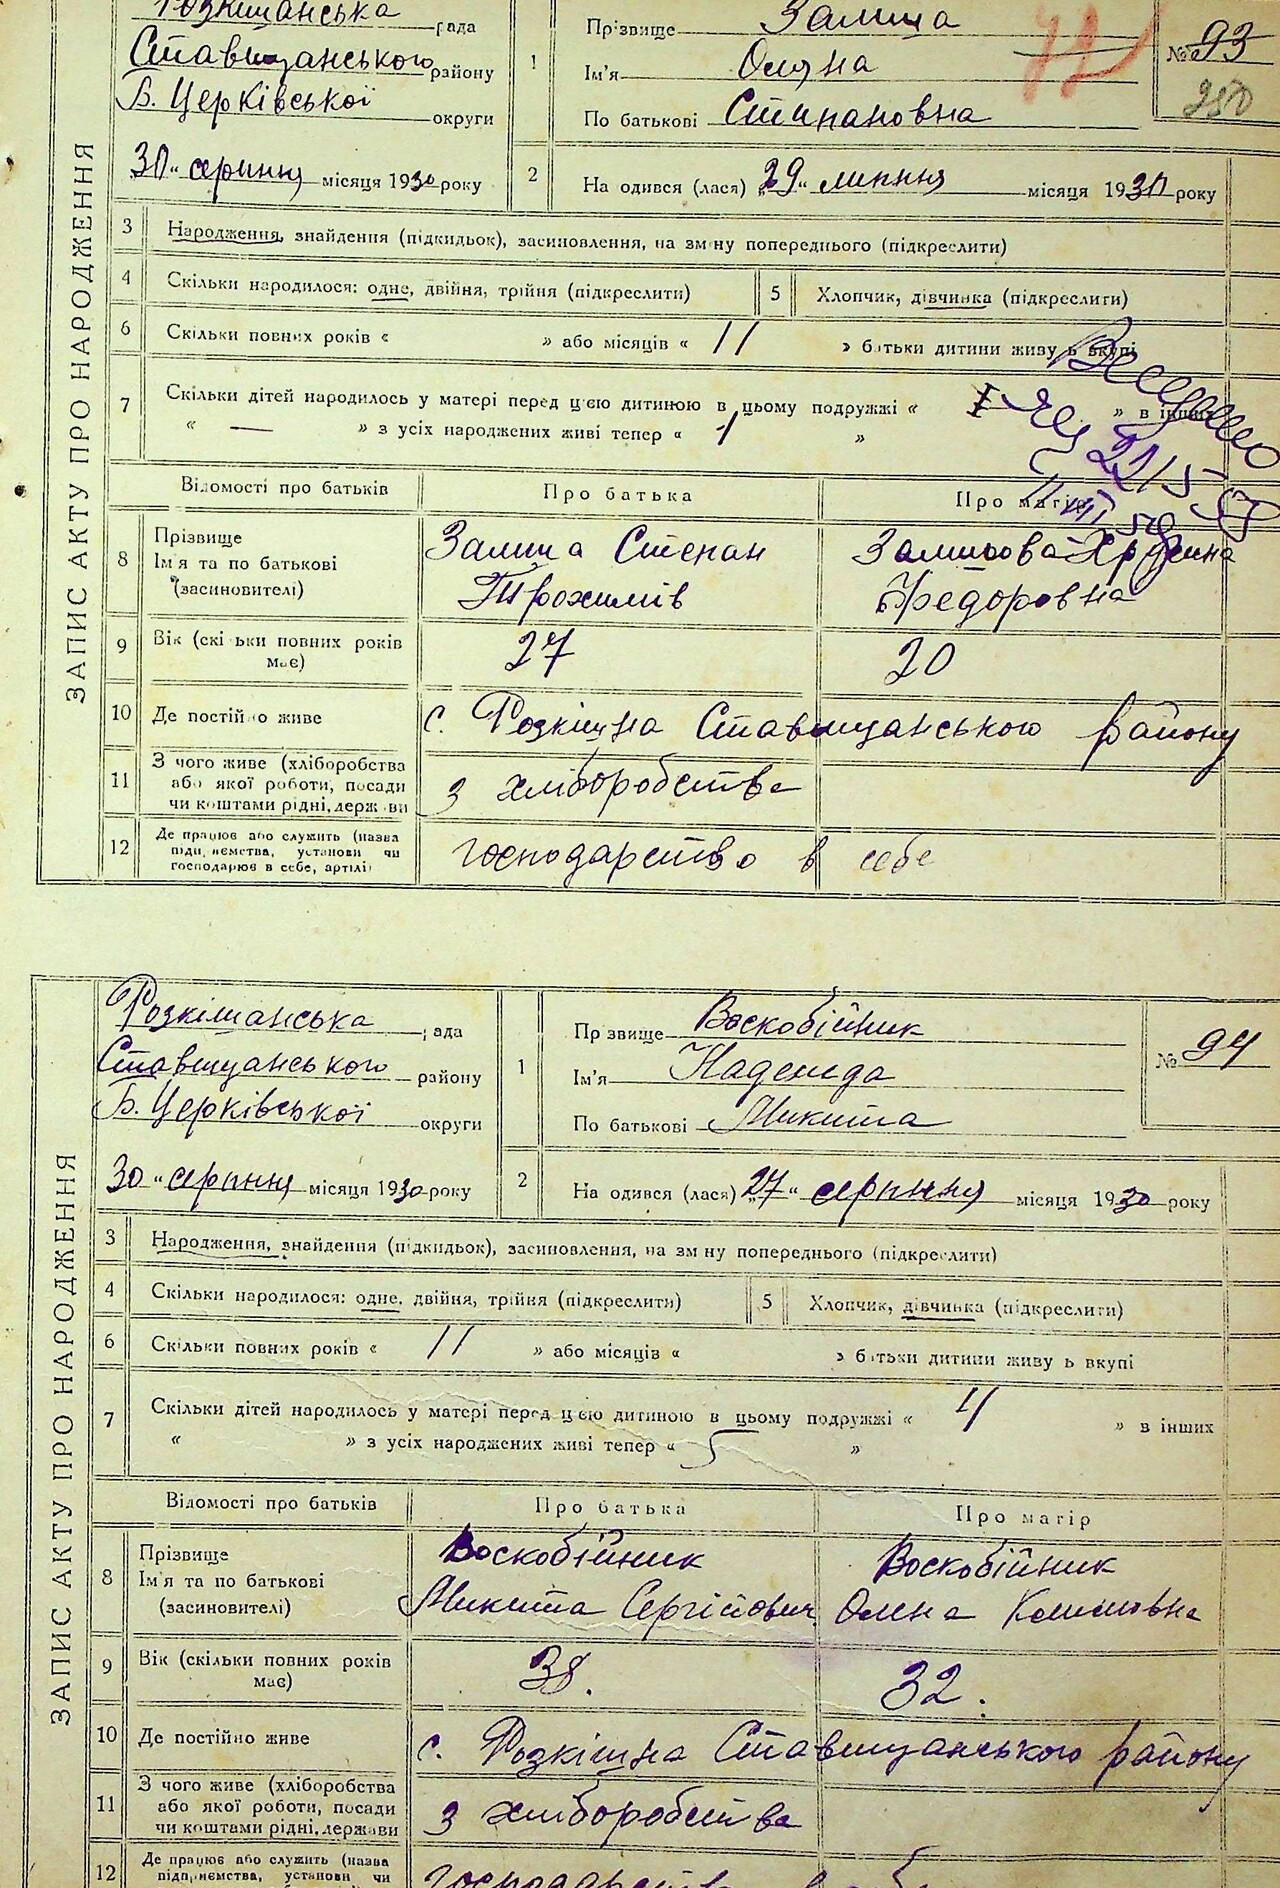 Розкішанська рада
Ставищанського району
Б. Церківської округи
30 " серпня місяця 1930 року
1
Пр звище Залиша
Ім'я
По батькові Стипановна
№ 93
250
2
На одився (лася) " 29 " липня місяця 1930 року
ЗАПИС АКТУ ПРО НАРОДЖЕННЯ
3 Народження, знайдення (підкидьок), засиновлення, на зм ну попереднього (підкреслити)
4 Скільки народилося: одне, двійня, трійня (підкреслити)
5 Хлопчик, дівчинка (підкреслити)
6 Скільки повних років « » або місяців « 11 » батьки дитини живу ь вкупі
7 Скільки дітей народилось у матері перед ц'єю дитиною в цьому подружжі « » в інших
« — » з усіх народжених живі тепер « 1 »
Відомості про батьків Про батька Про матір
8 Прізвище
Ім'я та по батькові
(засиновителі)
Залиша Степан
Трохимів
Залишова Христина
Федоровна
9 Вік (скі ьки повних років має) 27 20
10 Де постійно живе с. Розкішна Ставищанського району
11 З чого живе (хліборобства
або якої роботи, посади
чи коштами рідні, держави
з хліборобства
12 Де працює або служить (назва
підприємства, установи чи
господарює в себе, артілі)
господарство в себе
ЗАПИС АКТУ ПРО НАРОДЖЕННЯ
Розкішанська рада
Ставищанського району
Б. Церківської округи
30 " серпня місяця 1930 року
1
Пр звище Воскобійник
Ім'я Надежда
По батькові Микита
№ 94
2
На одився (лася) " 27 " серпня місяця 1930 року
3 Народження, знайдення (підкидьок), засиновлення, на зм ну попереднього (підкреслити)
4 Скільки народилося: одне, двійня, трійня (підкреслити)
5 Хлопчик, дівчинка (підкреслити)
6 Скільки повних років « 11 » або місяців « » батьки дитини живу ь вкупі
7 Скільки дітей народилось у матері перед ц'єю дитиною в цьому подружжі « 4 » в інших
« » з усіх народжених живі тепер « 5 »
Відомості про батьків Про батька Про матір
8 Прізвище
Ім'я та по батькові
(засиновителі)
Воскобійник
Микита Сергійович
Воскобійник
Олена Климовна
9 Вік (скільки повних років має) 38. 32.
10 Де постійно живе с. Розкішна Ставищанського району
11 З чого живе (хліборобства
або якої роботи, посади
чи коштами рідні, держави
з хліборобства
12 Де працює або служить (назва
підприємства, установи чи
господарство